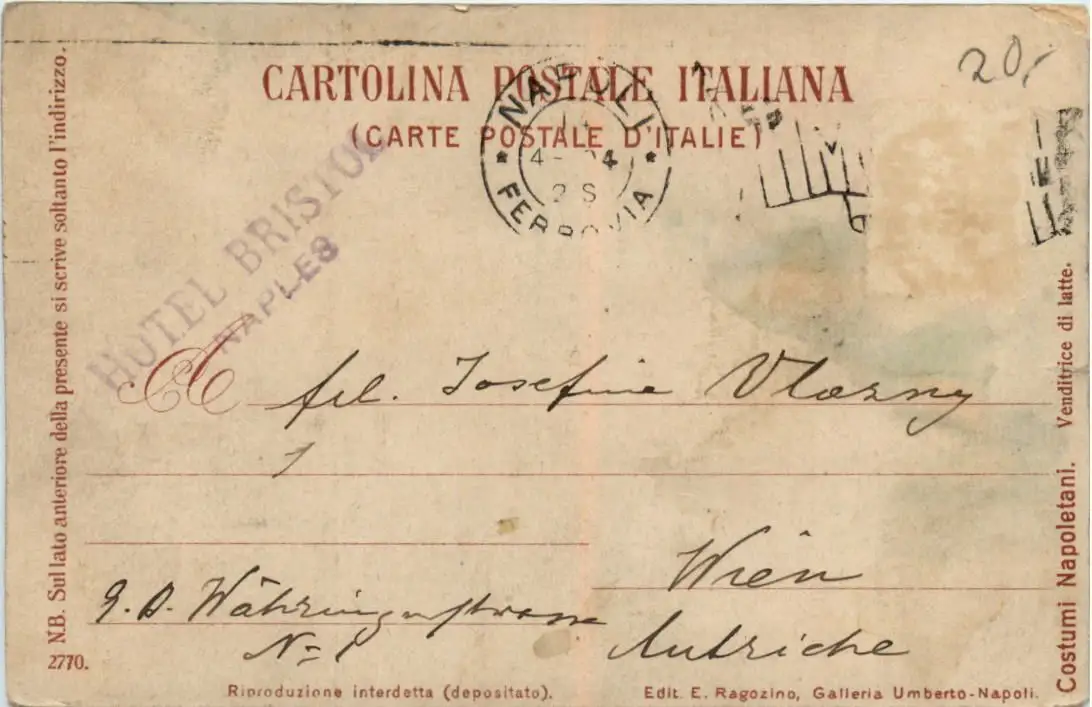 20,-
CARTOLINA POSTALE ITALIANA
(CARTE POSTALE D'ITALIE)
NAPOLI
FERROVIA
HOTEL BRISTOL
NAPLES
A frl. Josefine Vlasny
Wien
9. B. Währingerstrasse
No 1
Autriche
N.B. Sul lato anteriore della presente si scrive soltanto l'indirizzo.
2770.
Riproduzione interdetta (depositato).
Edit. E. Ragozino, Galleria Umberto-Napoli.
Costumi Napoletani. Venditrice di latte.